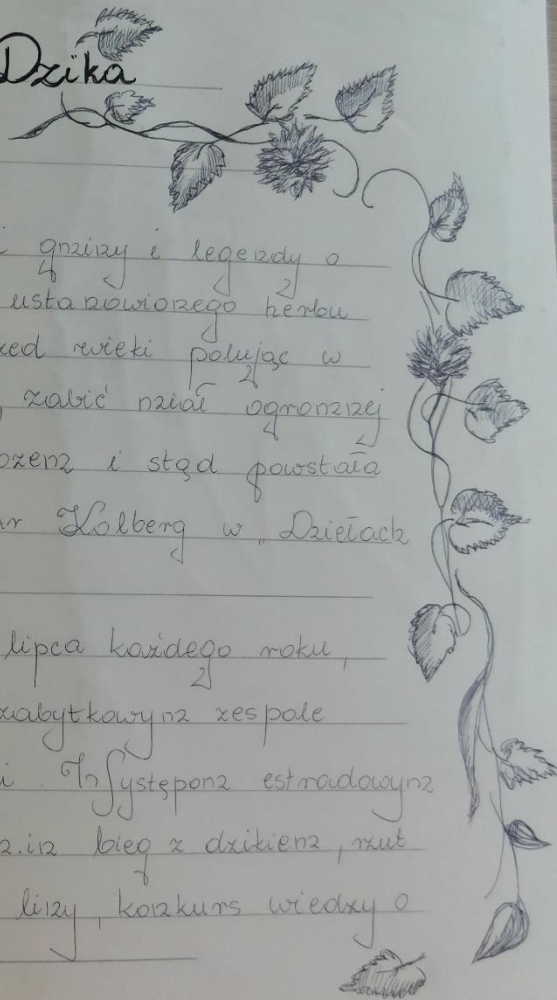 Dzika
i gminy i legendy o
ustanowionego herbu
wieki polując w
zabić miał ogromnej
i stąd powstała
Kolberg w „Dziełach
lipca każdego roku,
zabytkowym zespole
i. Występom estradowym
m.in bieg z dzikiem, rzut
liny, konkurs wiedzy o